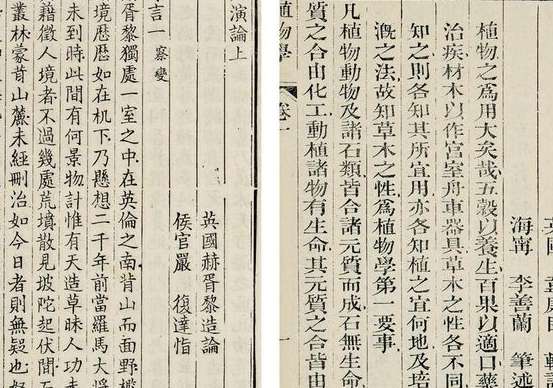 演論上
英國赫胥黎造論
侯官嚴 復達恉
言一 察變
胥黎獨處一室之中在英倫之南背山而面野檻
境歷歷如在机下乃懸想二千年前當羅馬大將
未到時此間有何景物計惟有天造草昧人功未
藉徵人境者不過幾處荒墳散見坡陀起伏間
叢林蒙茸山麓未經刪治如今日者則無疑也
海甯 李善蘭 筆述
植物之爲用大矣哉五穀以養生百果以適口
治疾材木以作宮室舟車器具草木之性各不同
知之則各知其所宜用亦各知植之宜何地及培
溉之法故知草木之性爲植物學第一要事
凡植物動物及諸石類皆合諸元質而成石無生命
質之合由化工動植諸物有生命其元質之合皆由
植物學 卷一 一